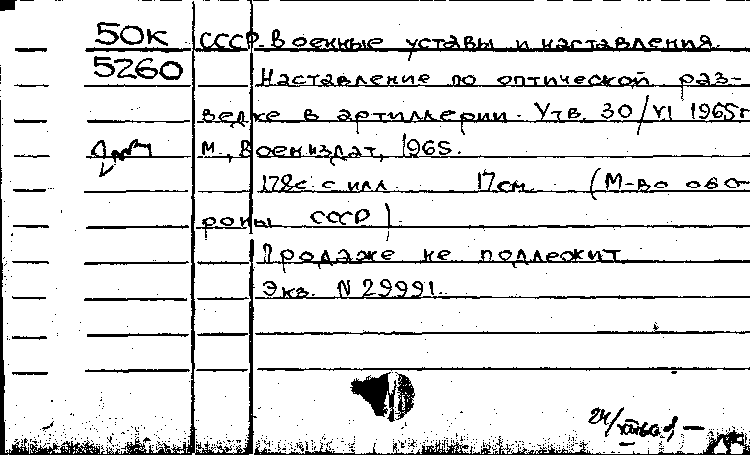 50К СССР. Военные уставы и наставления.
5260 Наставление по оптической раз-
ведке в артиллерии. Утв. 30/VI 1965г
М., Воениздат, 1965.
178с с илл 17см (М-во обо-
роны СССР).
Продаже не подлежит
Экз. N 29991.